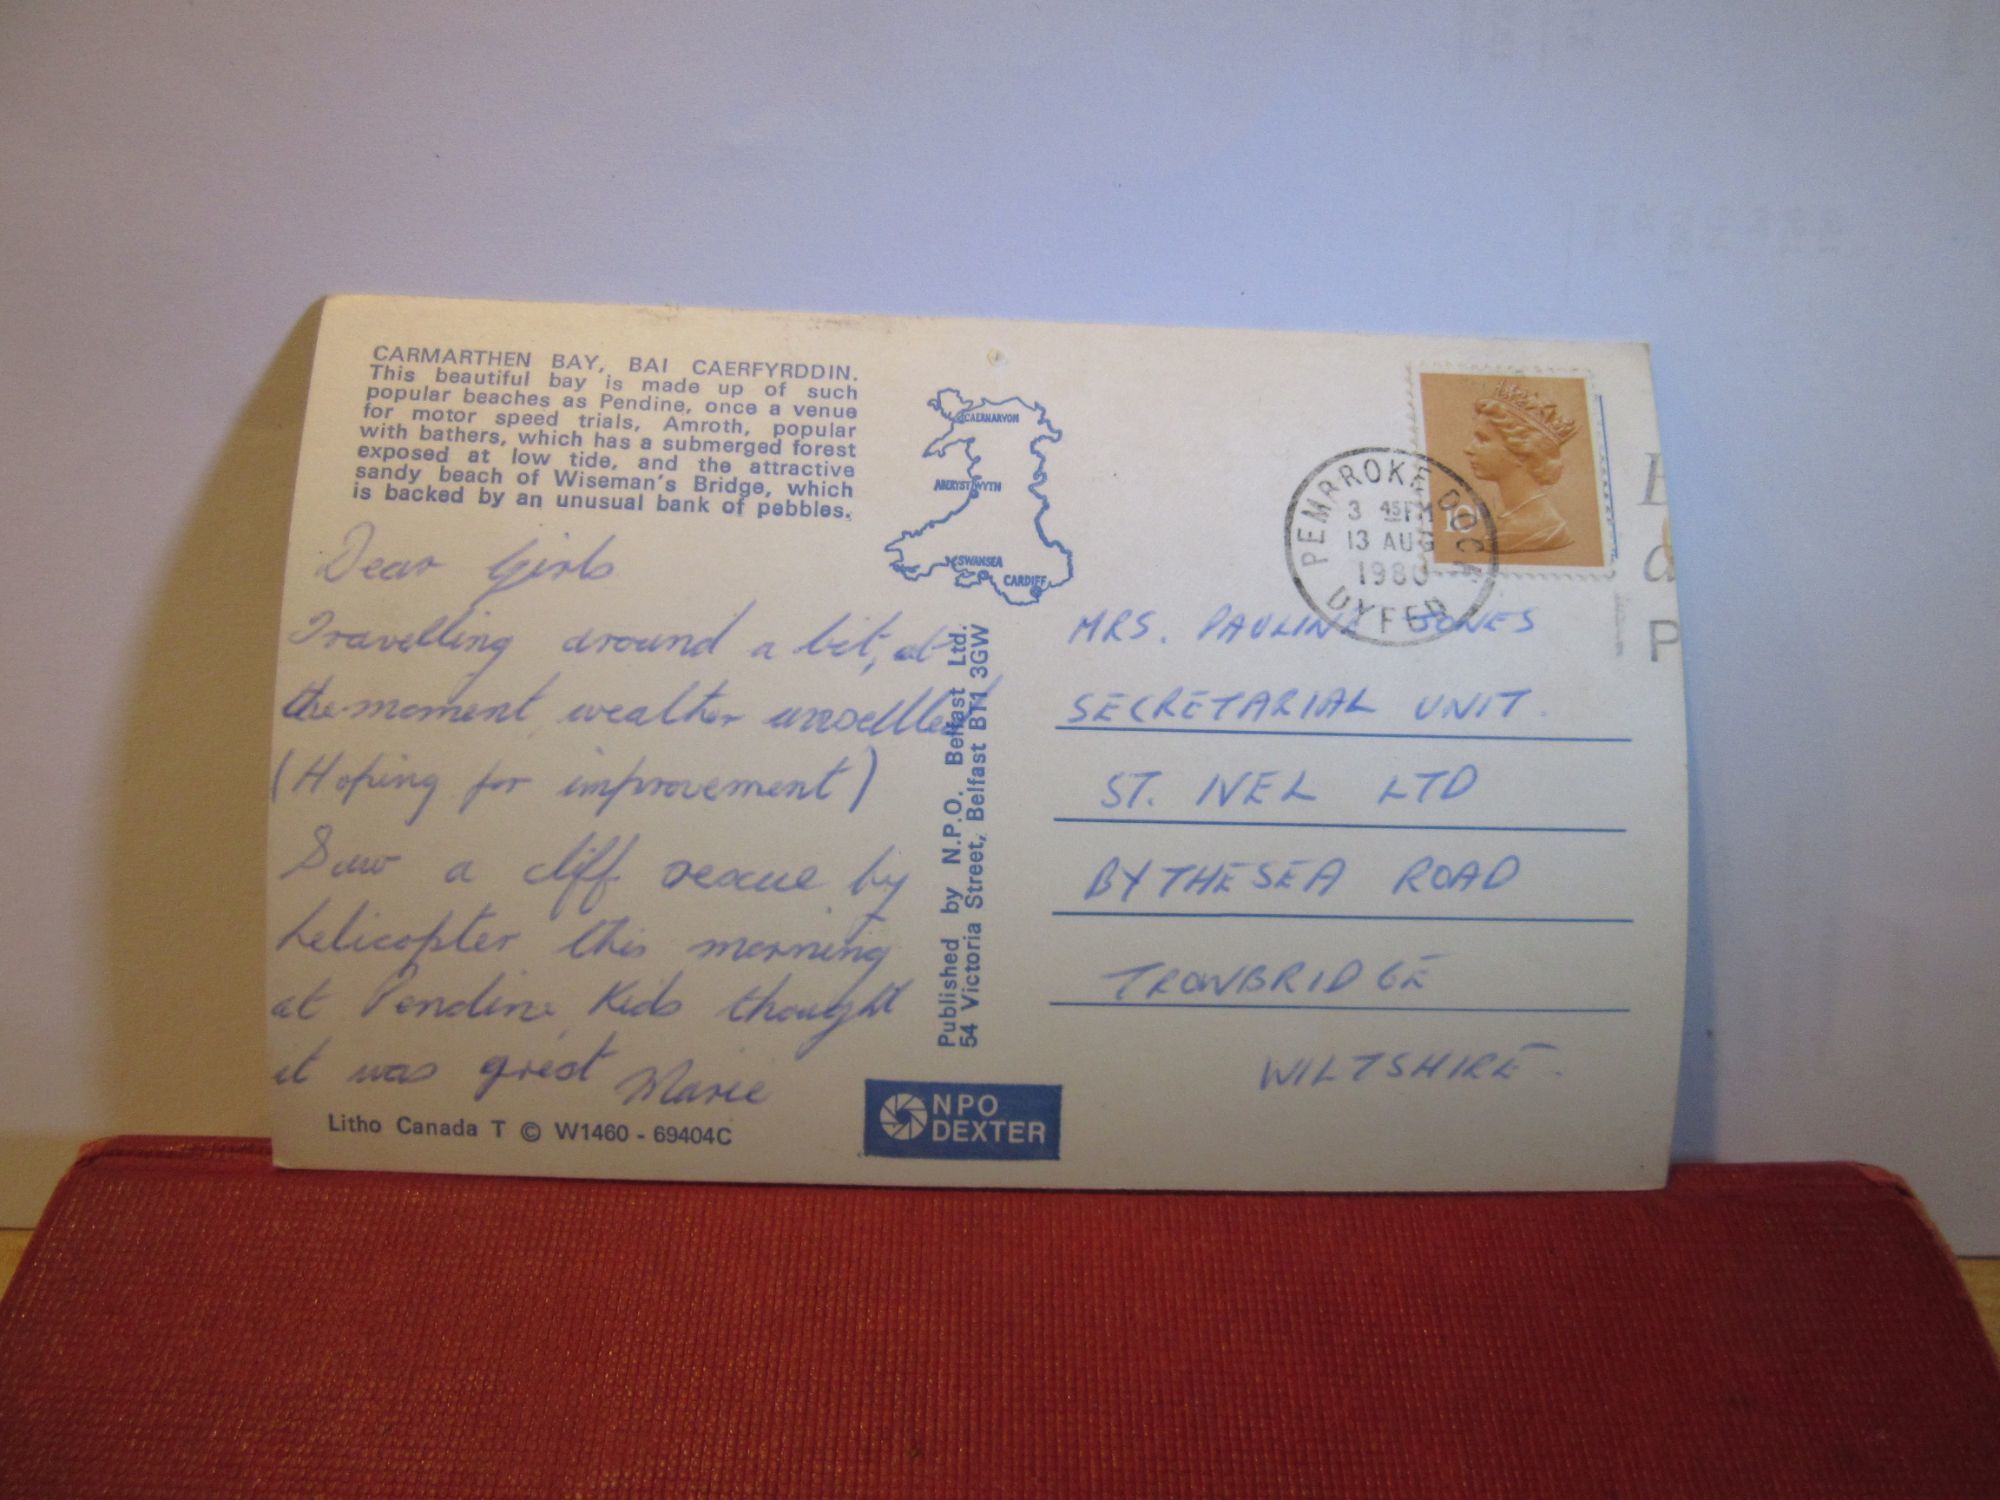 CARMARTHEN BAY, BAI CAERFYRDDIN.
This beautiful bay is made up of such
popular beaches as Pendine, once a venue
for motor speed trials, Amroth, popular
with bathers, which has a submerged forest
exposed at low tide, and the attractive
sandy beach of Wiseman's Bridge, which
is backed by an unusual bank of pebbles.
Dear Girls
Travelling around a bit, at
the moment weather unsettled
(Hoping for improvement)
Saw a cliff rescue by
helicopter this morning
at Pendine, Kids thought
it was great Marie
Litho Canada T © W1460 - 69404C
CAERNARVON
ABERYSTWYTH
SWANSEA
CARDIFF
Published by N.P.O. Belfast Ltd.
54 Victoria Street, Belfast BT1 3GW
NPO
DEXTER
PEMBROKE DOCK
3 45 PM
13 AUG
1980
DYFED
10
MRS. PAULINE JONES
SECRETARIAL UNIT.
ST. IVEL LTD
BYTHESEA ROAD
TROWBRIDGE
WILTSHIRE.